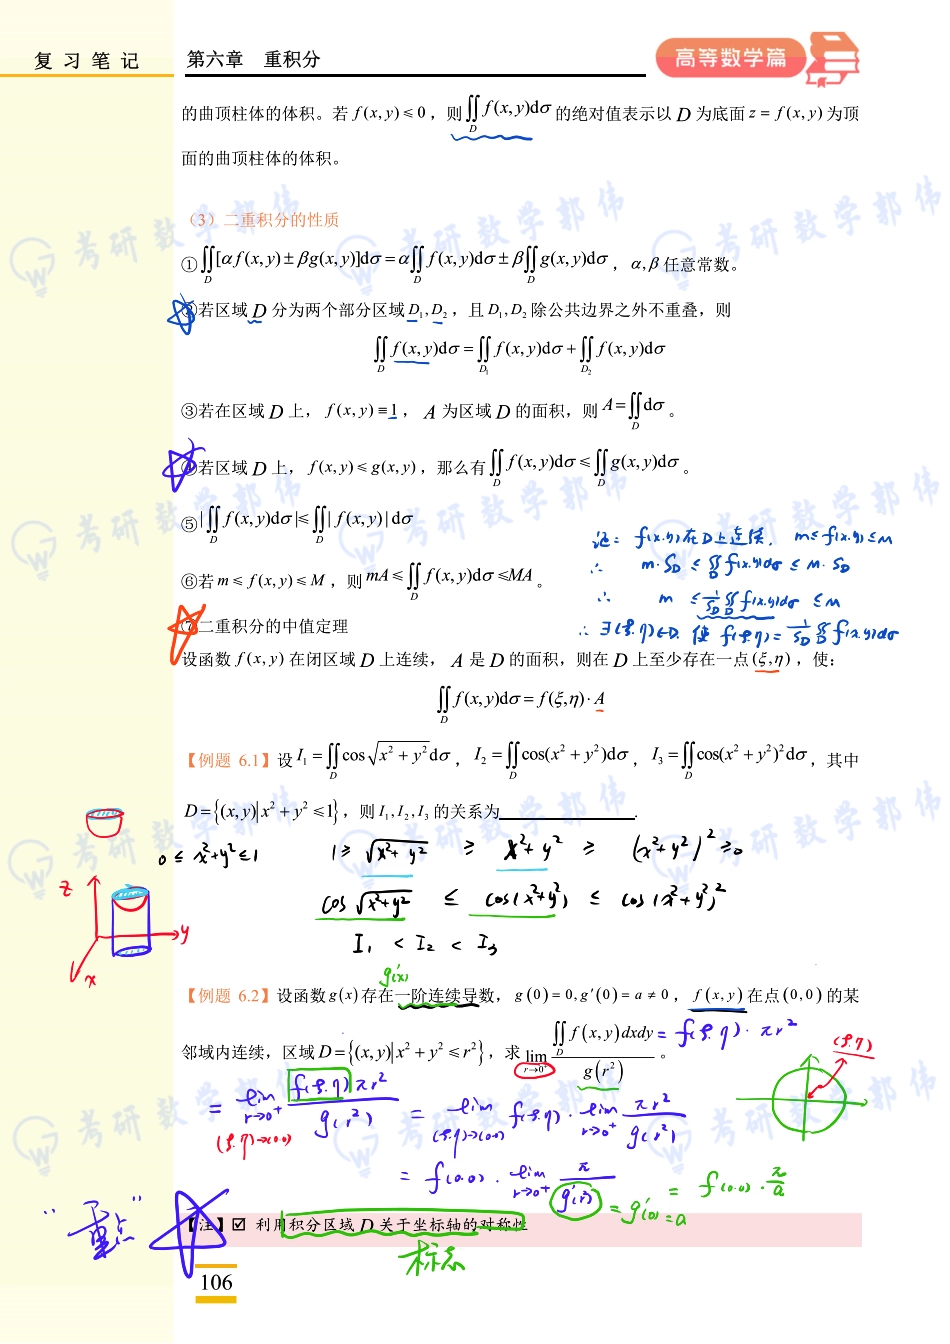 复 习 笔 记
第六章 重积分
高等数学篇
的曲顶柱体的体积。若 f(x,y)≤0，则∬_D f(x,y)dσ 的绝对值表示以 D 为底面 z = f(x,y) 为顶
面的曲顶柱体的体积。
（3）二重积分的性质
①∬_D [αf(x,y)±βg(x,y)]dσ=α∬_D f(x,y)dσ±β∬_D g(x,y)dσ，α,β 任意常数。
②若区域 D 分为两个部分区域 D₁,D₂，且 D₁,D₂ 除公共边界之外不重叠，则
∬_D f(x,y)dσ=∬_{D₁} f(x,y)dσ+∬_{D₂} f(x,y)dσ
③若在区域 D 上，f(x,y)≡1，A 为区域 D 的面积，则 A=∬_D dσ。
④若区域 D 上，f(x,y)≤g(x,y)，那么有∬_D f(x,y)dσ≤∬_D g(x,y)dσ。
⑤|∬_D f(x,y)dσ|≤∬_D |f(x,y)|dσ
证：f(x.y)在D上连续. m≤f(x.y)≤M
⑥若 m≤f(x,y)≤M，则 mA≤∬_D f(x,y)dσ≤MA。
∴ m·S_D ≤ ∬_D f(x.y)dσ ≤ M·S_D
∴ m ≤ 1/S_D ∬_D f(x.y)dσ ≤ M
⑦二重积分的中值定理
∴ ∃(ξ.η)∈D. 使 f(ξ.η)= 1/S_D ∬_D f(x.y)dσ
设函数 f(x,y) 在闭区域 D 上连续，A 是 D 的面积，则在 D 上至少存在一点(ξ,η)，使：
∬_D f(x,y)dσ=f(ξ,η)·A
【例题 6.1】设 I₁=∬_D cos√(x²+y²)dσ，I₂=∬_D cos(x²+y²)dσ，I₃=∬_D cos(x²+y²)²dσ，其中
D={(x,y)|x²+y²≤1}，则 I₁,I₂,I₃ 的关系为____.
0≤x²+y²≤1 1≥ √(x²+y²) ≥ x²+y² ≥ (x²+y²)²≥0
z
y
x
cos√(x²+y²) ≤ cos(x²+y²) ≤ cos(x²+y²)²
I₁ < I₂ < I₃
g'(x)
【例题 6.2】设函数 g(x) 存在一阶连续导数，g(0)=0,g′(0)=a≠0，f(x,y) 在点(0,0)的某
邻域内连续，区域 D={(x,y)|x²+y²≤r²}，求 lim_{r→0⁺} ∬_D f(x,y)dxdy / g(r²)。
= f(ξ.η)·πr²
(ξ.η)
= lim_{r→0⁺} f(ξ.η)πr² / g(r²) = lim_{(ξ.η)→(0.0)} f(ξ.η)·lim_{r→0⁺} πr² / g(r²)
(ξ.η)→(0.0)
= f(0.0)·lim_{r→0⁺} π / g'(r²) = f(0.0)·π/a
= g'(0)=a
“重点”
【注】☑ 利用积分区域 D 关于坐标轴的对称性
标志
106
考研数学郭伟